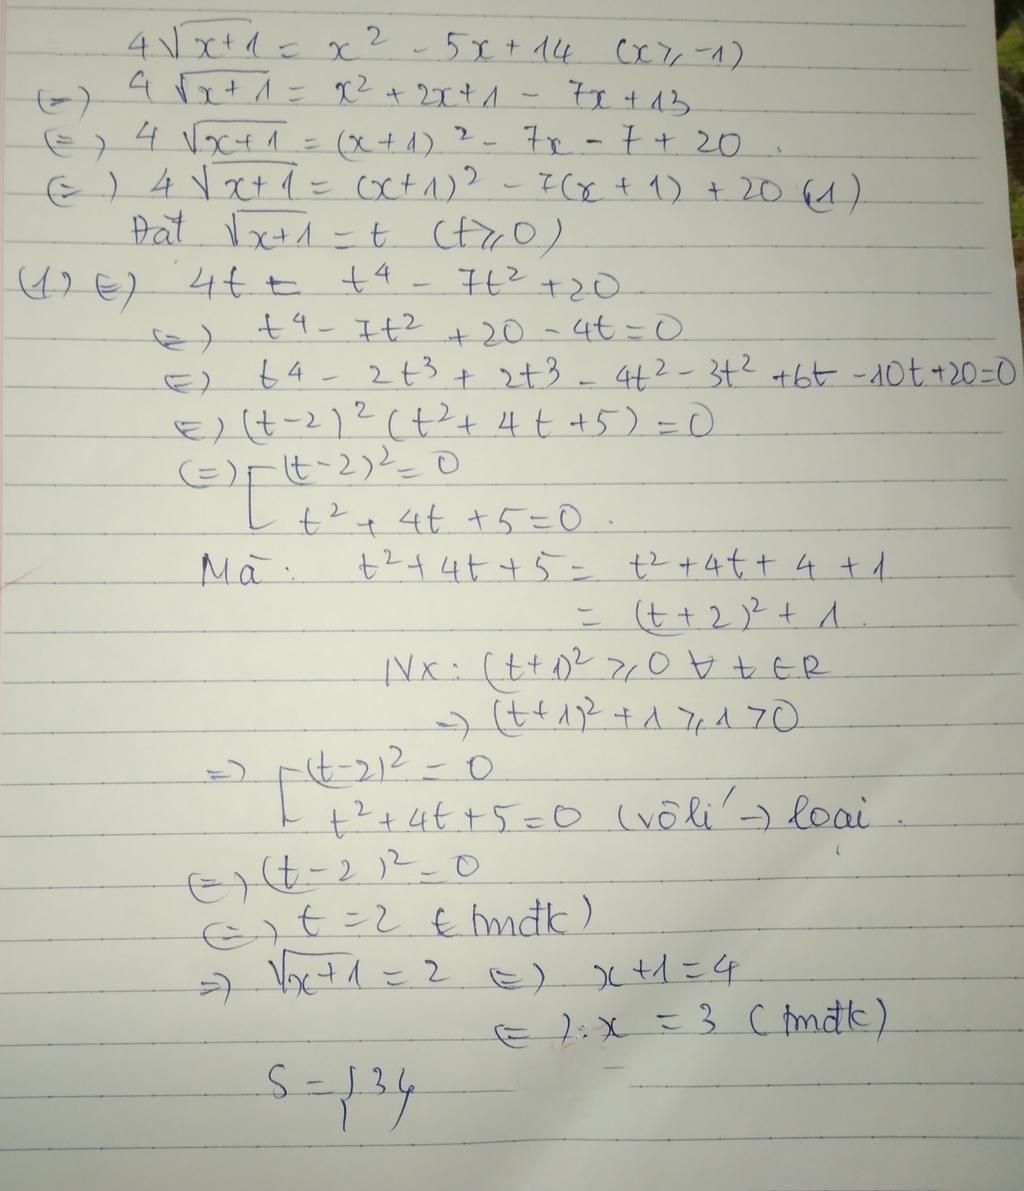 4√x+1 = x² - 5x + 14 (x ≥ -1)
(=) 4√x+1 = x² + 2x + 1 - 7x + 13
(=) 4√x+1 = (x+1)² - 7x - 7 + 20.
(=) 4√x+1 = (x+1)² - 7(x+1) + 20 (1)
Đặt √x+1 = t (t ≥ 0)
(1) (=) 4t = t⁴ - 7t² + 20
(=) t⁴ - 7t² + 20 - 4t = 0
(=) t⁴ - 2t³ + 2t³ - 4t² - 3t² + 6t - 10t + 20 = 0
(=) (t-2)² (t² + 4t + 5) = 0
(=) [ (t-2)² = 0
t² + 4t + 5 = 0.
Mà: t² + 4t + 5 = t² + 4t + 4 + 1
= (t+2)² + 1
Nx: (t+1)² ≥ 0 ∀ t ∈ R
=) (t+1)² + 1 ≥ 1 > 0
=) [ (t-2)² = 0
t² + 4t + 5 = 0 (vô lí -) loại.
(=) (t-2)² = 0
(=) t = 2 (tmđk)
=) √x+1 = 2 (=) x+1 = 4
(=): x = 3 (tmđk)
S = {3}